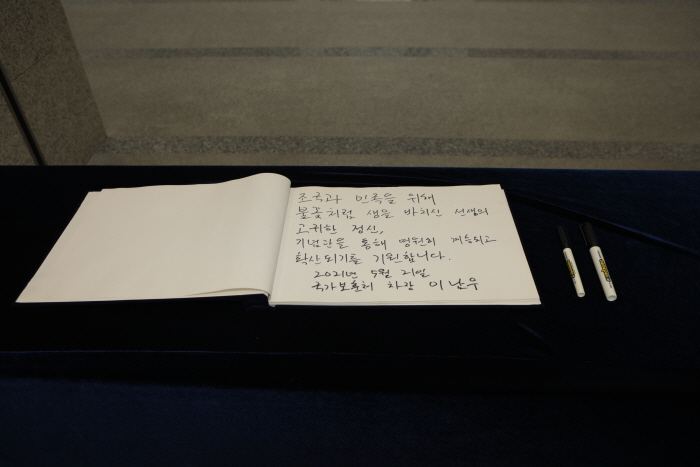 조국과 민족을 위해
불꽃처럼 생을 바치신 선생의
고귀한 정신,
기념관을 통해 영원히 계승되고
확산되기를 기원합니다.
2021년 5월 21일
국가보훈처 차장 이남우